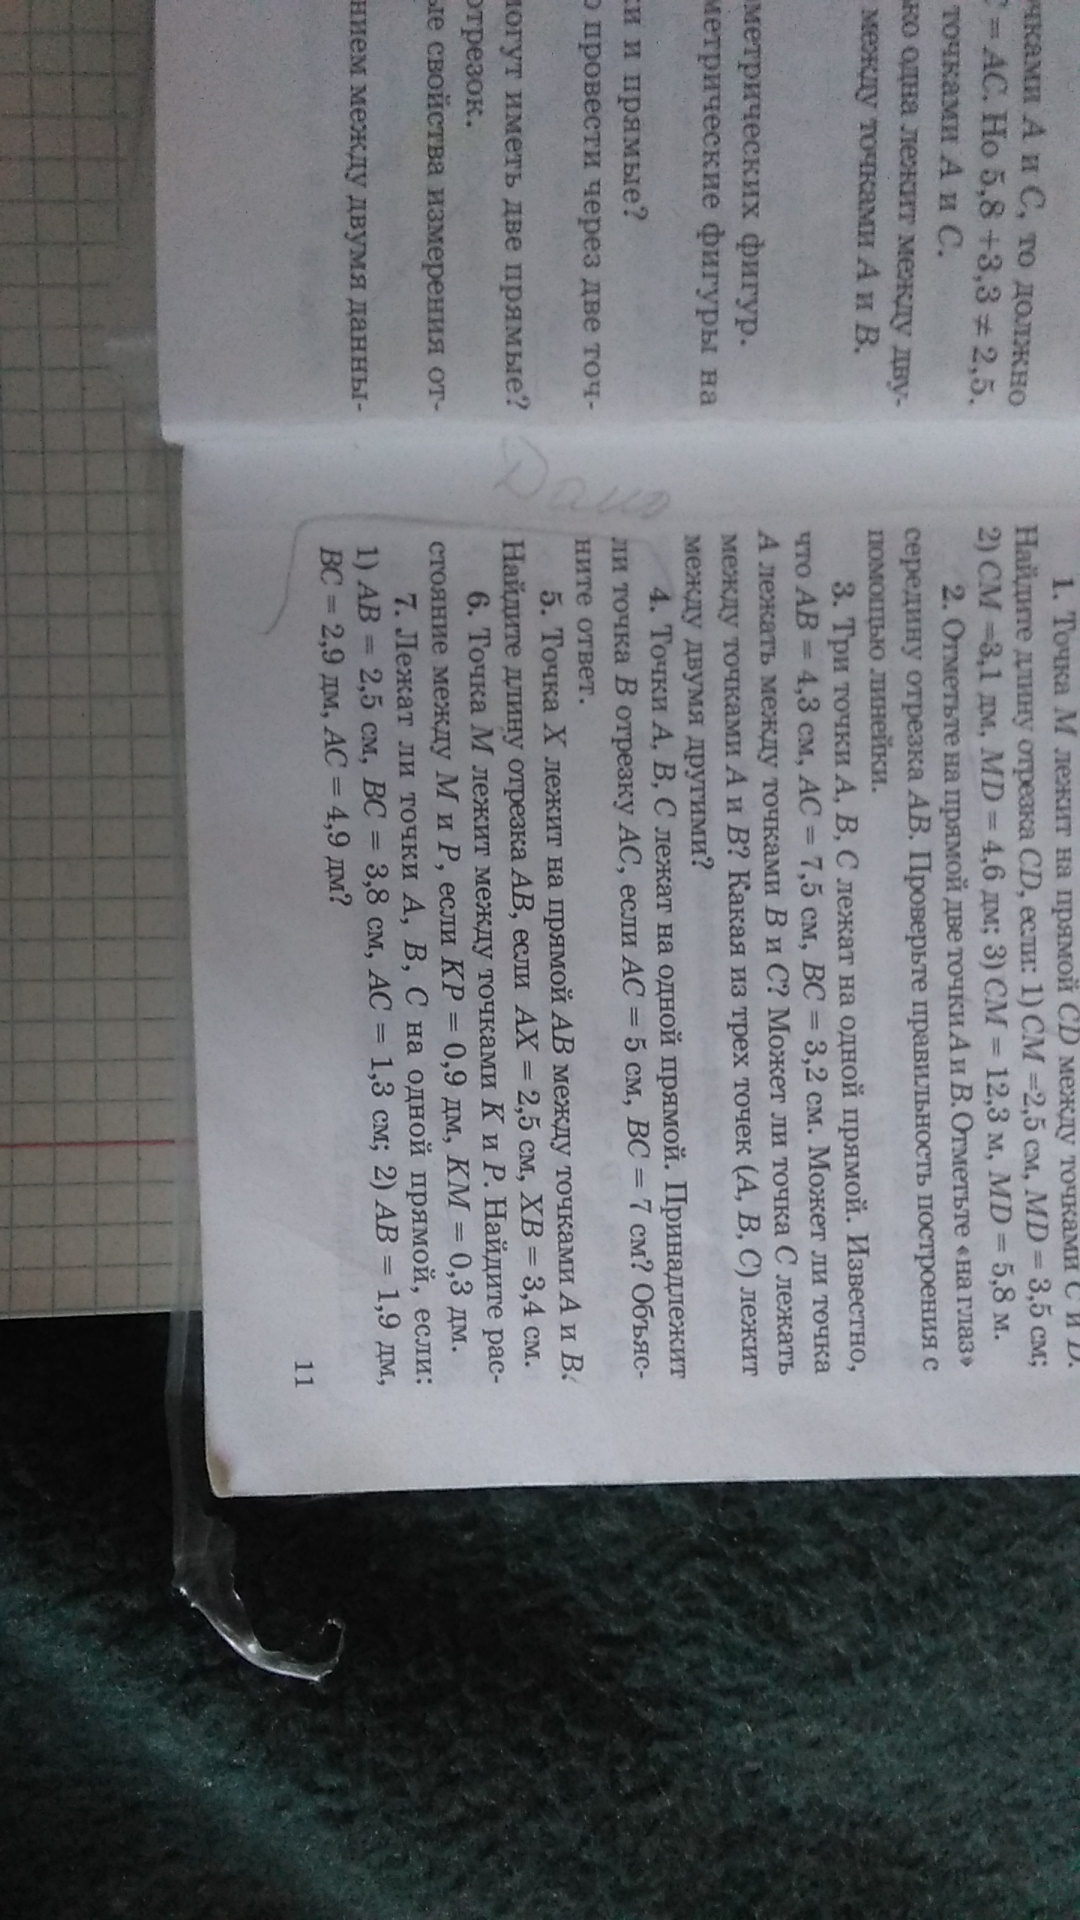 чками A и C, то должно
C = AC. Но 5,8 +3,3 ≠ 2,5.
точками A и C.
ко одна лежит между дву-
между точками A и B.
метрических фигур.
метрические фигуры на
и и прямые?
провести через две точ-
могут иметь две прямые?
отрезок.
ые свойства измерения от-
нием между двумя данны-
Дано
1. Точка M лежит на прямой CD между точками C и D.
Найдите длину отрезка CD, если: 1) CM =2,5 см, MD = 3,5 см;
2) CM =3,1 дм, MD = 4,6 дм; 3) CM = 12,3 м, MD = 5,8 м.
2. Отметьте на прямой две точки A и B. Отметьте «на глаз»
середину отрезка AB. Проверьте правильность построения с
помощью линейки.
3. Три точки A, B, C лежат на одной прямой. Известно,
что AB = 4,3 см, AC = 7,5 см, BC = 3,2 см. Может ли точка
A лежать между точками B и C? Может ли точка C лежать
между точками A и B? Какая из трех точек (A, B, C) лежит
между двумя другими?
4. Точки A, B, C лежат на одной прямой. Принадлежит
ли точка B отрезку AC, если AC = 5 см, BC = 7 см? Объяс-
ните ответ.
5. Точка X лежит на прямой AB между точками A и B.
Найдите длину отрезка AB, если AX = 2,5 см, XB = 3,4 см.
6. Точка M лежит между точками K и P. Найдите рас-
стояние между M и P, если KP = 0,9 дм, KM = 0,3 дм.
7. Лежат ли точки A, B, C на одной прямой, если:
1) AB = 2,5 см, BC = 3,8 см, AC = 1,3 см; 2) AB = 1,9 дм,
BC = 2,9 дм, AC = 4,9 дм?
11